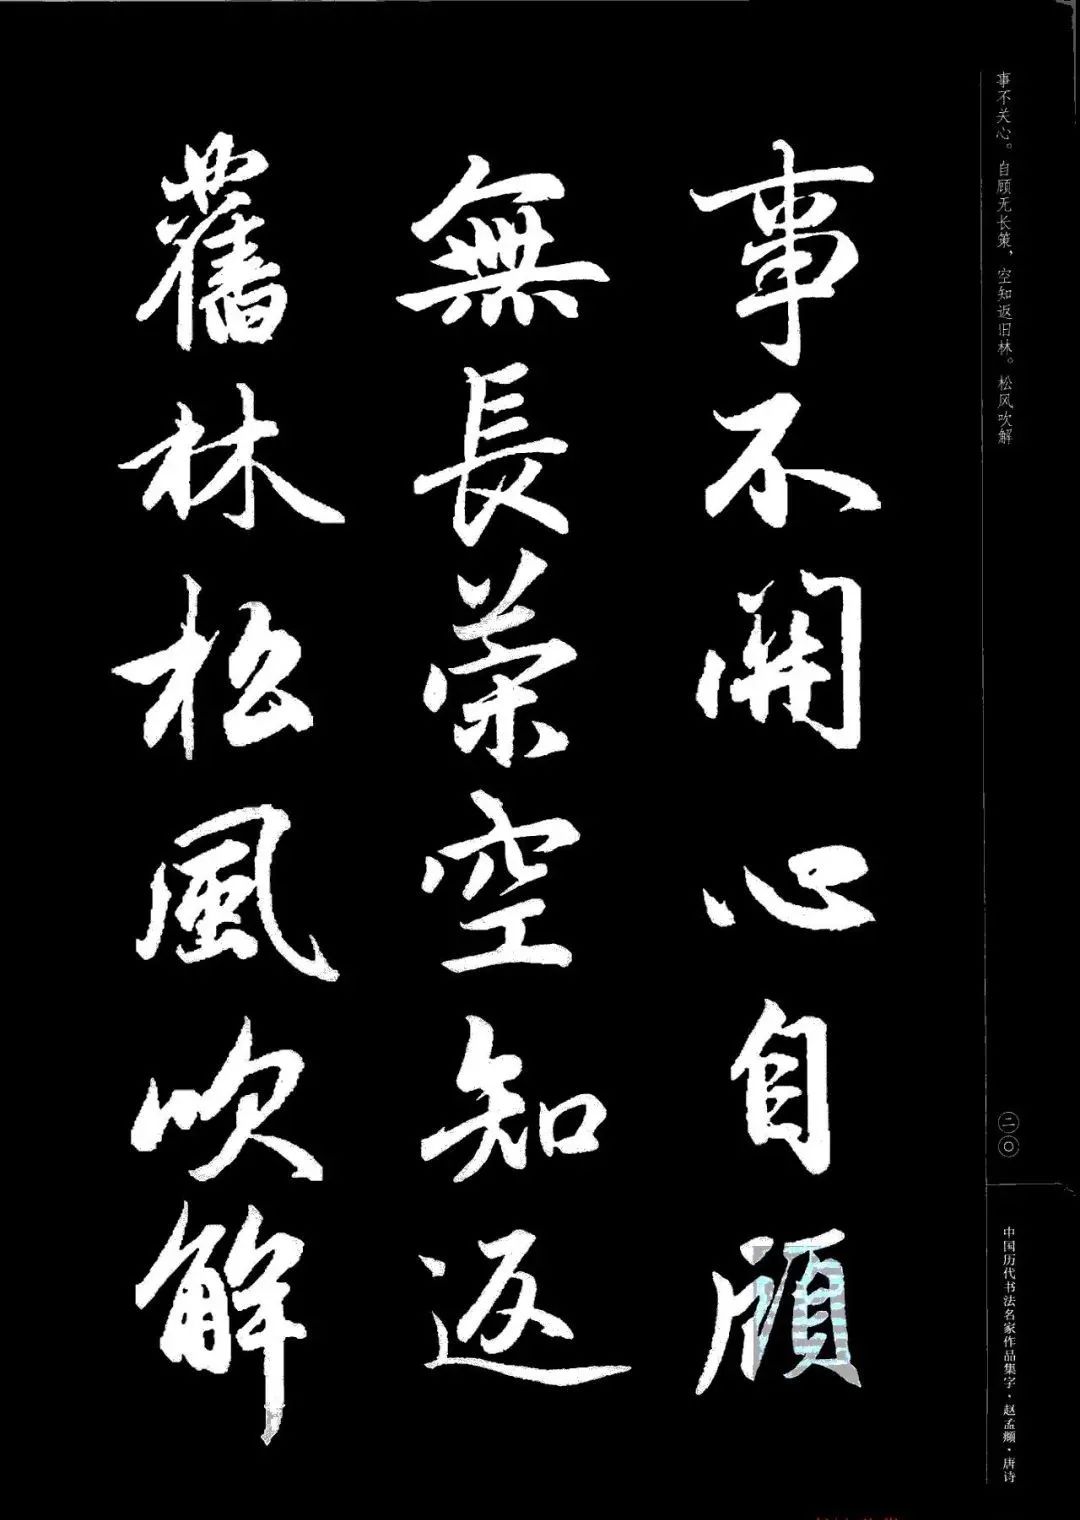 事不關心自顧
無長策空知返
舊林松風吹解
事不关心。自顾无长策，空知返旧林。松风吹解
二〇
中国历代书法名家作品集字·赵孟頫·唐诗